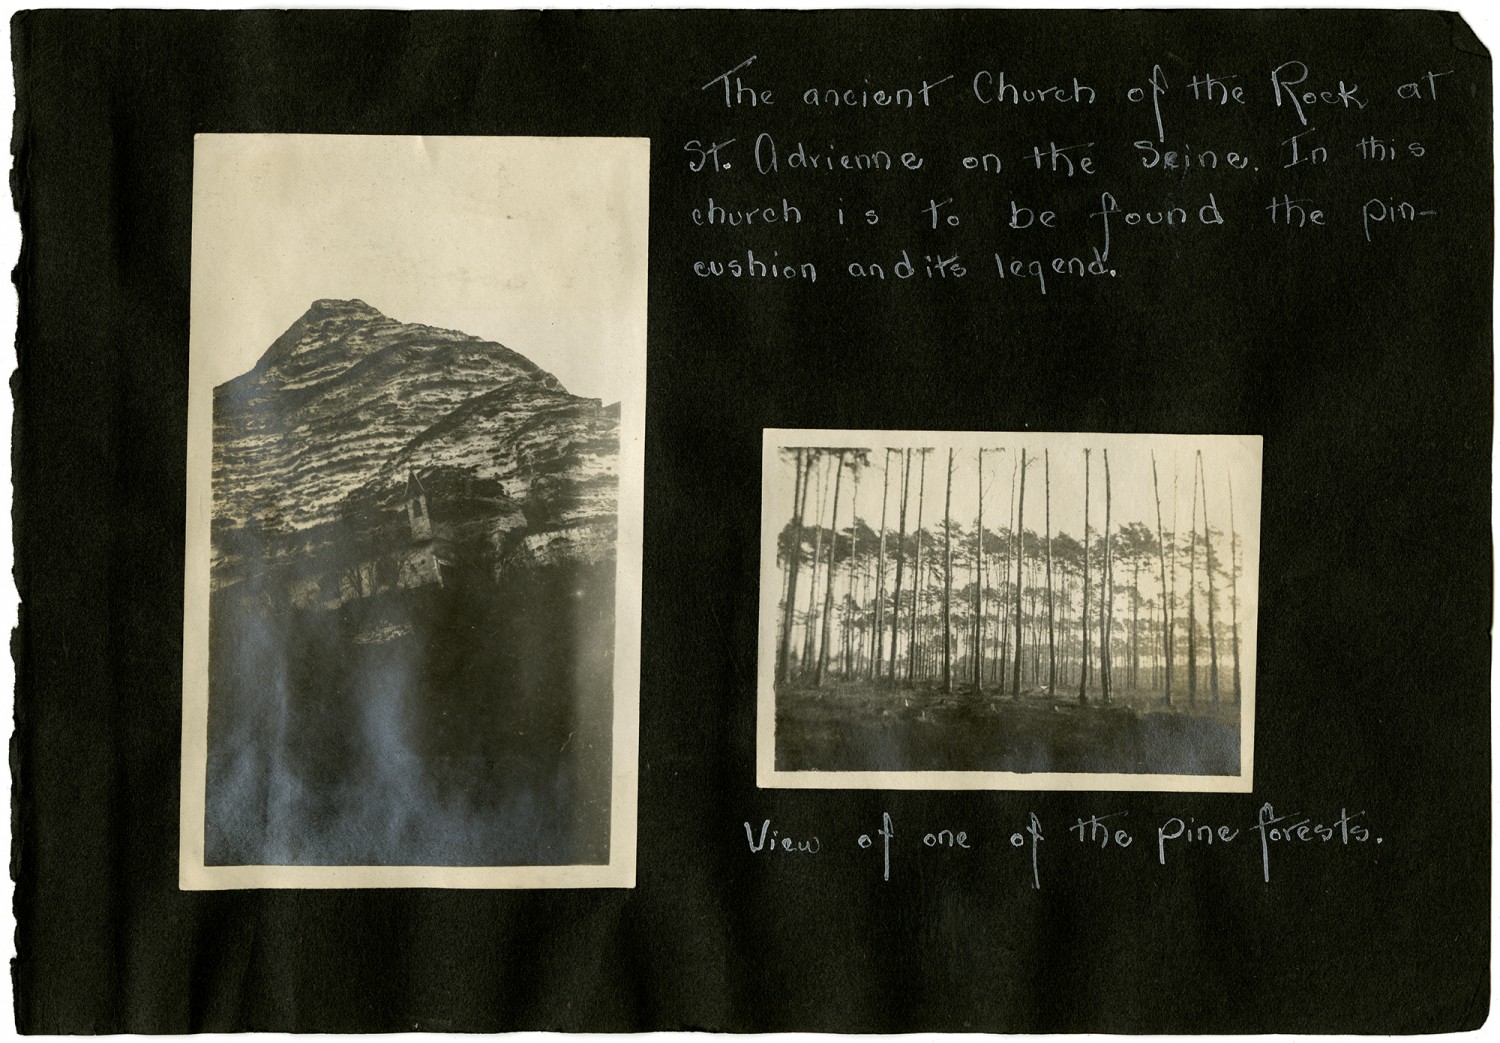 The ancient Church of the Rock at
St. Adrienne on the Seine. In this
church is to be found the pin-
cushion and its legend.
View of one of the pine forests.